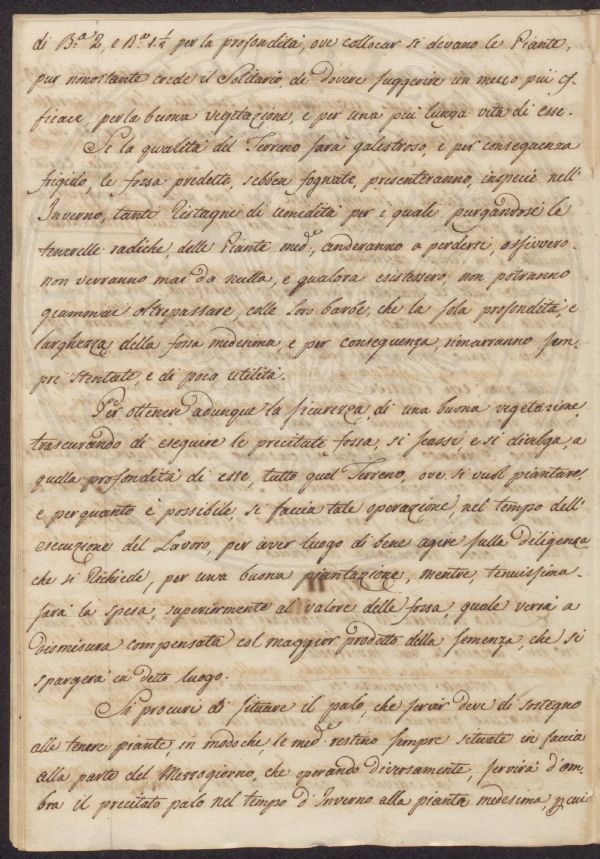 di B.a 2, e B.a 1½ per la profondità, ove collocar si devano le Piante,
pur nonostante crede il Solitario, di dovere suggerire un mezzo più ef-
ficace, per la buona vegetazione, e per una più lunga vita di esse.
Se la qualità del Terreno sarà galestroso, e per conseguenza
frigido, le fossa predette, sebben fognate, presenteranno, inspecie nell'
Inverno, tanti Ristagni di umidità per i quali purgandosi le
tenerelle radiche, delle Piante med.e, anderanno a perdersi, ossivvero
non verranno mai da nulla, e qualora esistessero, non potranno
giammai oltrepassare, colle loro barbe, che la sola profondità, e
larghezza della fossa medesima, e per conseguenza, rimarranno sem-
pre stentate, e di poca utilità.
Per ottenere adunque la sicurezza, di una buona vegetazione
trascurando di eseguire le precitate fossa, si scassi, e si divelga, a
quella profondità di esse, tutto quel Terreno, ove si vuol piantare,
e per quanto è possibile, si faccia tale operazione, nel tempo dell'
esecuzione del Lavoro, per aver luogo di bene agire sulla diligenza
che si Richiede, per una buona piantazione, mentre, tenuissima
sarà la spesa, superiormente al valore delle fossa, quale verrà a
dismisura compensata col maggior prodotto della semenza, che si
spargerà in detto luogo.
Si procuri di situare il palo, che servir deve di sostegno
alle tenere piante, in modo che, le med.e restino sempre situate in faccia
alla parte del Mezzogiorno, che operando diversamente, servirà d'om-
bra il precitato palo nel tempo d'Inverno alla pianta medesima, p cui